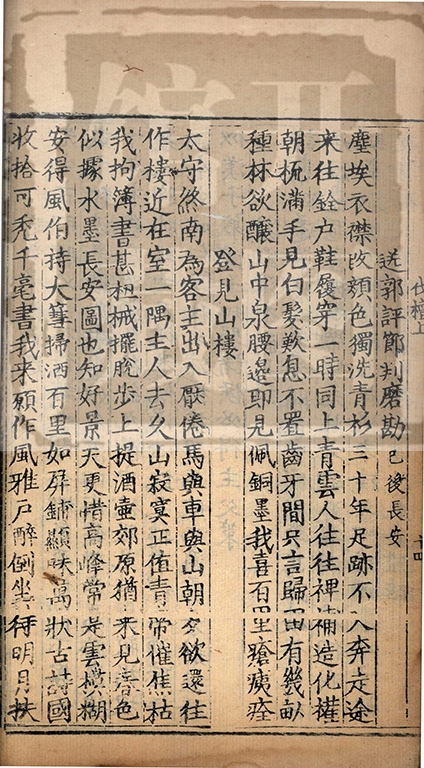 伐檀上
十四
送郭評節判磨勘 已後長安
塵埃衣襟改顏色獨洗青衫三十年足跡不入奔走途
来往銓户鞋履穿一時同上青雲人往往禆補造化權
朝梳滿手見白髮歎息不置齒牙間只言歸田有幾畝
種秫欲釀山中泉腰邊即見佩銅墨我喜百里瘡痍痊
登見山樓
太守終南為客主出入厭倦馬與車與山朝夕欲還往
作樓近在室一隅主人去久山寂寞正值青帝催焦枯
我拘簿書甚杻械擺脫步上提酒壺郊原猶未見春色
似據水墨長安圖也知好景天更惜高峰常是雲模糊
安得風伯持大篲掃洒百里如屏鋪顯昧萬狀古詩國
收拾可禿千毫書我来願作風雅户醉倒坐待明月扶